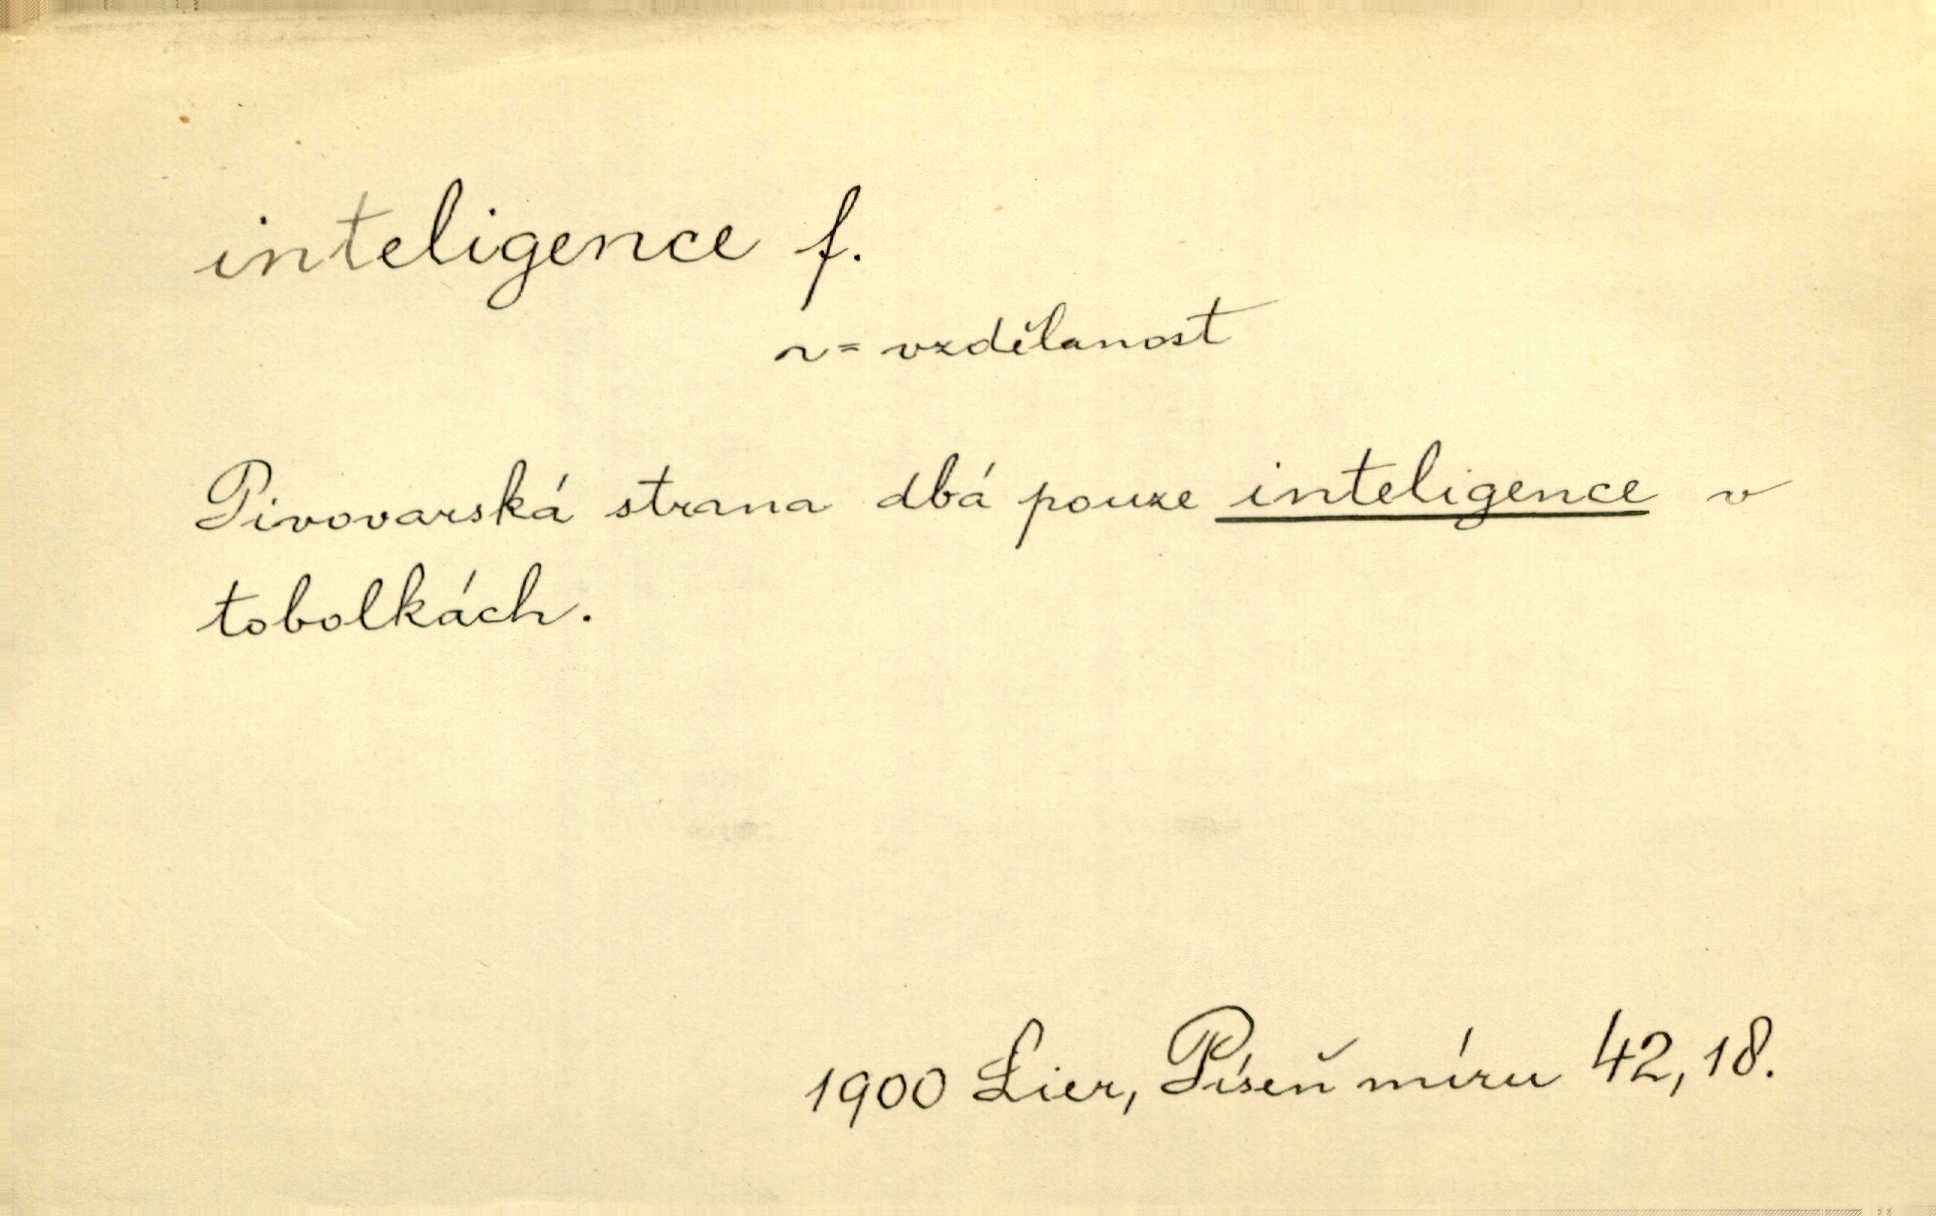 inteligence f.
~= vzdělanost
Pivovarská strana dbá pouze inteligence v
tobolkách.
1900 Lier, Píseň míru 42,18.